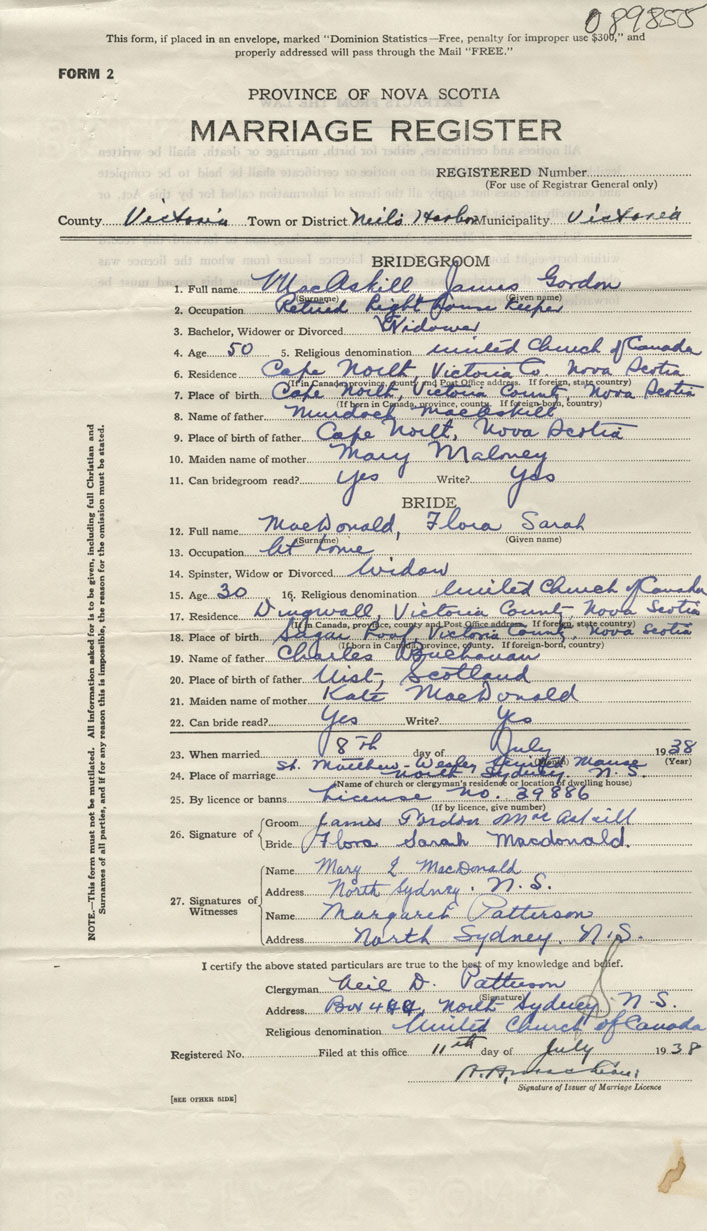 089855
This form, if placed in an envelope, marked "Dominion Statistics—Free, penalty for improper use $300," and
properly addressed will pass through the Mail "FREE."
FORM 2
PROVINCE OF NOVA SCOTIA
MARRIAGE REGISTER
REGISTERED Number
(For use of Registrar General only)
County Victoria Town or District Neil's Harbor Municipality Victoria
BRIDEGROOM
1. Full name MacAskill James Gordon
(Surname) (Given name)
2. Occupation Retired Light House Keeper
3. Bachelor, Widower or Divorced Widower
4. Age 50 5. Religious denomination United Church of Canada
6. Residence Cape North, Victoria Co. Nova Scotia
(If in Canada, province, county and Post Office address. If foreign, state country)
7. Place of birth Cape North, Victoria County, Nova Scotia
(If born in Canada, province, county. If foreign-born, country)
8. Name of father Murdoch MacAskill
9. Place of birth of father Cape North, Nova Scotia
10. Maiden name of mother Mary Maloney
11. Can bridegroom read? Yes Write? Yes
BRIDE
12. Full name MacDonald, Flora Sarah
(Surname) (Given name)
13. Occupation At home
14. Spinster, Widow or Divorced Widow
15. Age 30 16. Religious denomination United Church of Canada
17. Residence Dingwall, Victoria County, Nova Scotia
(If in Canada, province, county and Post Office address. If foreign, state country)
18. Place of birth Sugar Loaf, Victoria County, Nova Scotia
(If born in Canada, province, county. If foreign-born, country)
19. Name of father Charles Buchanan
20. Place of birth of father Uist, Scotland
21. Maiden name of mother Kate MacDonald
22. Can bride read? Yes Write? Yes
23. When married 8th day of July 1938
(Month) (Year)
St. Matthew-Wesley United Manse
24. Place of marriage North Sydney. N.S.
(Name of church or clergyman's residence or location of dwelling house)
25. By licence or banns License no. 39886
(If by licence, give number)
26. Signature of Groom James Gordon MacAskill
Bride Flora Sarah Macdonald.
27. Signatures of Witnesses
Name Mary E MacDonald
Address North Sydney. N.S.
Name Margaret Patterson
Address North Sydney. N.S.
I certify the above stated particulars are true to the best of my knowledge and belief.
Clergyman Neil D. Patterson
(Signature)
Address Box 444, North Sydney, N-S.
Religious denomination United Church of Canada
Registered No. Filed at this office 11th day of July 1938
Signature of Issuer of Marriage Licence
[SEE OTHER SIDE]
NOTE.—This form must not be mutilated. All information asked for is to be given, including full Christian and
Surnames of all parties, and if for any reason this is impossible, the reason for the omission must be stated.